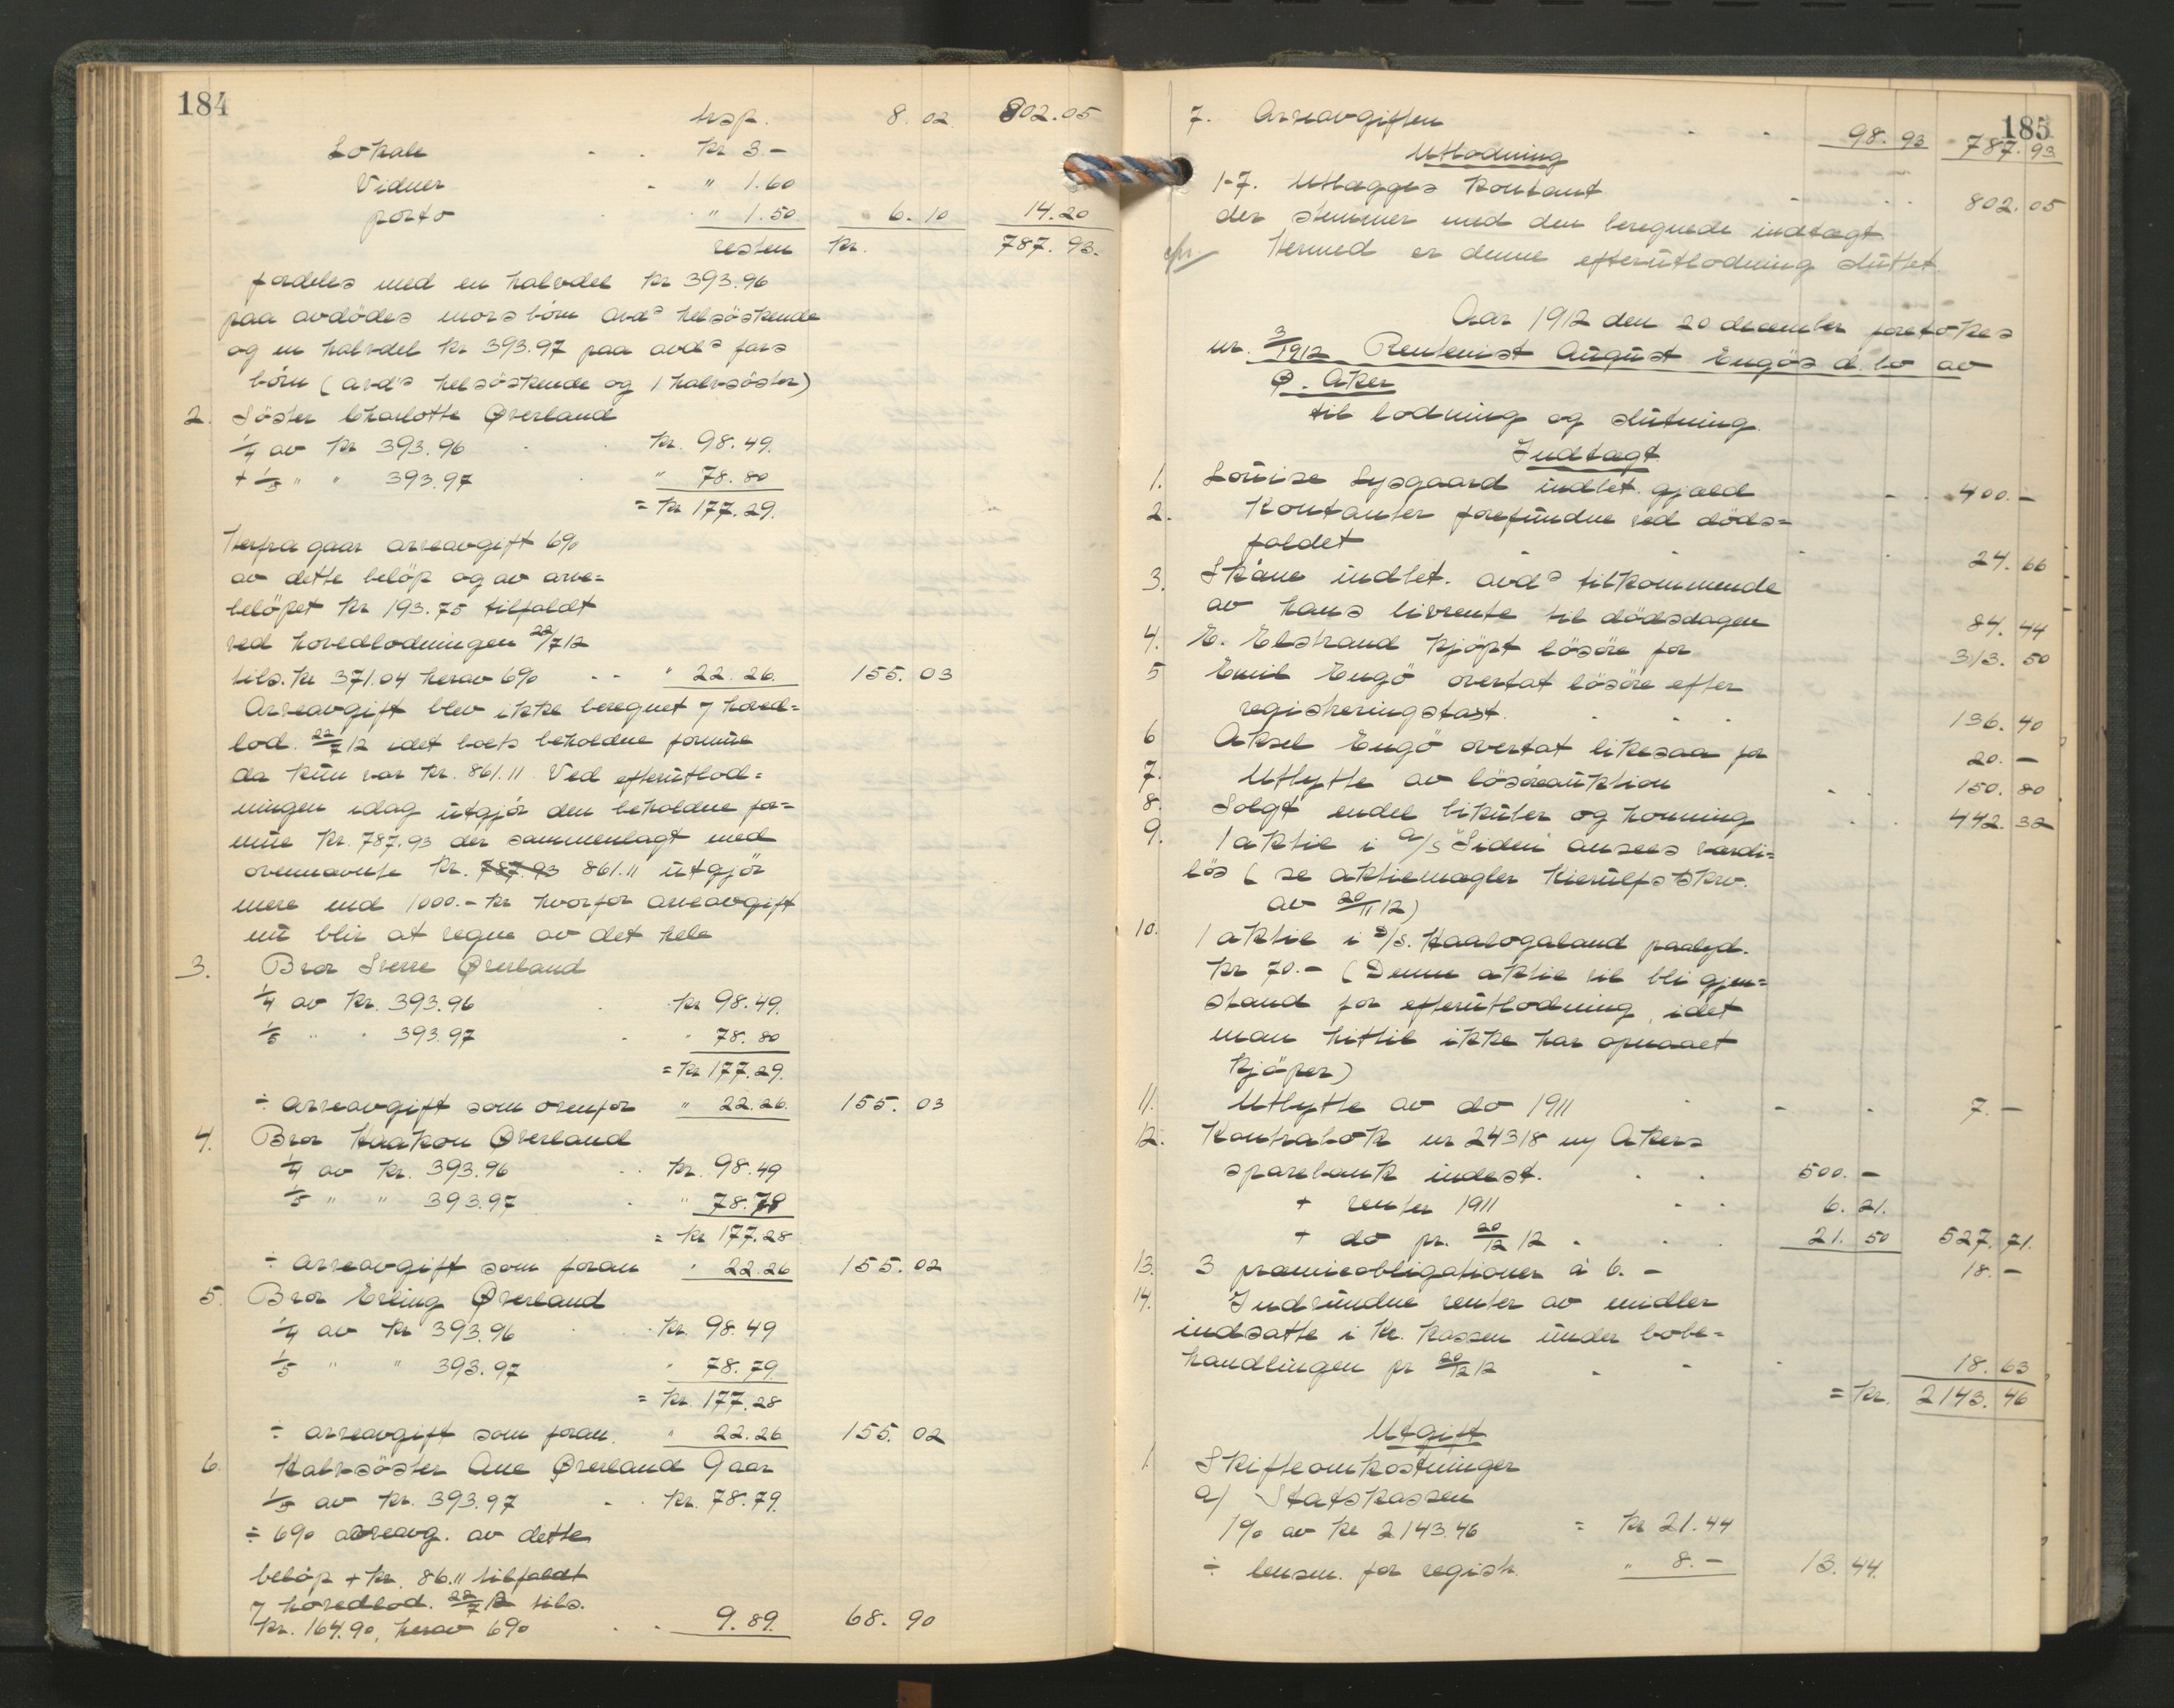 184
trsp. 8.02 802.05
Lokale - - Kr 3.-
Vidner - " 1.60
porto " 1.50 6.10 14.20
resten Kr. 787.93.
fordeles med en halvdel Kr 393.96
paa avdødes mors børn avds helsøskende
og en halvdel Kr 393.97 paa avds fars
børn (avd's helsøskende og 1 halvsøster)
2. Søster Charlotte Øverland
1/4 av Kr 393.96 Kr. 98.49.
+ 1/5 " " 393.97 " 78.80
= Kr 177.29.
Herfra gaar arveavgift 6%
av dette beløp og av arve=
beløpet Kr 193.75 tilfaldt
ved hovedlodningen 22/7 12
tils. Kr 371.04 herav 6% - - " 22.26. 155.03
Arveavgift blev ikke beregnet v/ hoved=
lod. 22/7 12 idet boets beholdne formue
da kun var Kr. 861.11. Ved efterutlod=
ningen idag utgjør den beholdne for=
mue Kr. 787.93 der sammenlagt med
ovennævnte Kr. 787.93 861.11 utgjør
mere end 1000.- Kr hvorfor arveavgift
nu blir at regne av det hele
3. Bror Sverre Øverland
1/4 av Kr. 393.96 Kr 98.49.
1/5 " " 393.97 " 78.80
= Kr 177.29.
÷ arveavgift som ovenfor " 22.26. 155.03
4. Bror Haakon Øverland
1/4 av Kr. 393.96 Kr. 98.49
1/5 " " 393.97 " 78.79
= Kr 177.28
÷ arveavgift som foran " 22.26 155.02
5. Bror Erling Øverland
1/4 av Kr 393.96 Kr. 98.49
1/5 " " 393.97 " 78.79.
= Kr. 177.28
÷ arveavgift som foran. " 22.26 155.02
6. Halvsøster Ane Øverland Gaar
1/5 av Kr. 393.97 - Kr. 78.79.
÷ 6% arveavg. av dette
beløp + Kr. 86.11 tilfaldt
v/ hovedlod. 22/7 12 tils.
Kr. 164.90, herav 6% - - 9.89. 68.90
185
7. Arveavgiften - - 98.93 787.93
Utlodning
1-7. Utlægges kontant 802.05
der stemmer med den beregnede indtægt.
Hermed er denne efterutlodning sluttet.
Aar 1912 den 20 december foretokes
nr. 3/1912 Rentenist August Engøs d. bo av
Ø. Aker
til lodning og slutning.
Indtægt
1. Louise Lysgaard indbet. gjæld - - 400.-
2. Kontanter forefundne ved døds=
faldet 24.66
3. Skåne indbet. avds tilkommende
av hans livrente til dødsdagen 84.44
4. E. Elstrand kjøpt løsøre for 313.50
5 Emil Engø overtat løsøre efter
registreringstaxt. 136.40
6 Aksel Engø overtat likesaa for 20.-
7. Utbytte av løsøreauktion 150.80
8. Solgt endel bikuber og honning 442.32
9. 1 aktie i A/S "Siden" ansees værdi=
løs (se aktiemægler Kierulfs skrv.
av 20/11 12)
10. 1 aktie i D/S. Haalogaland paalyd.
Kr 70.- (Denne aktie vil bli gjen=
stand for efterutlodning, idet
man hittil ikke har opnaaet
kjøper)
11. Utbytte av do 1911 7.-
12. Kontrabok nr 24318 v/ Akers
sparebank indest. 500.-
+ renter 1911 6.21.
+ do pr. 20/12 12 21.50 527.71.
13. 3 præmieobligationer à 6.- 18.-
14. Indvundne renter av midler
indsatte i Kr. kassen under bobe=
handlingen pr 20/12 12 18.63
= Kr. 2143.46
Utgift
1. Skifteomkostninger
a) Statskassen
1% av Kr 2143.46 = Kr 21.44
÷ lensm. for registr. " 8.- 13.44.